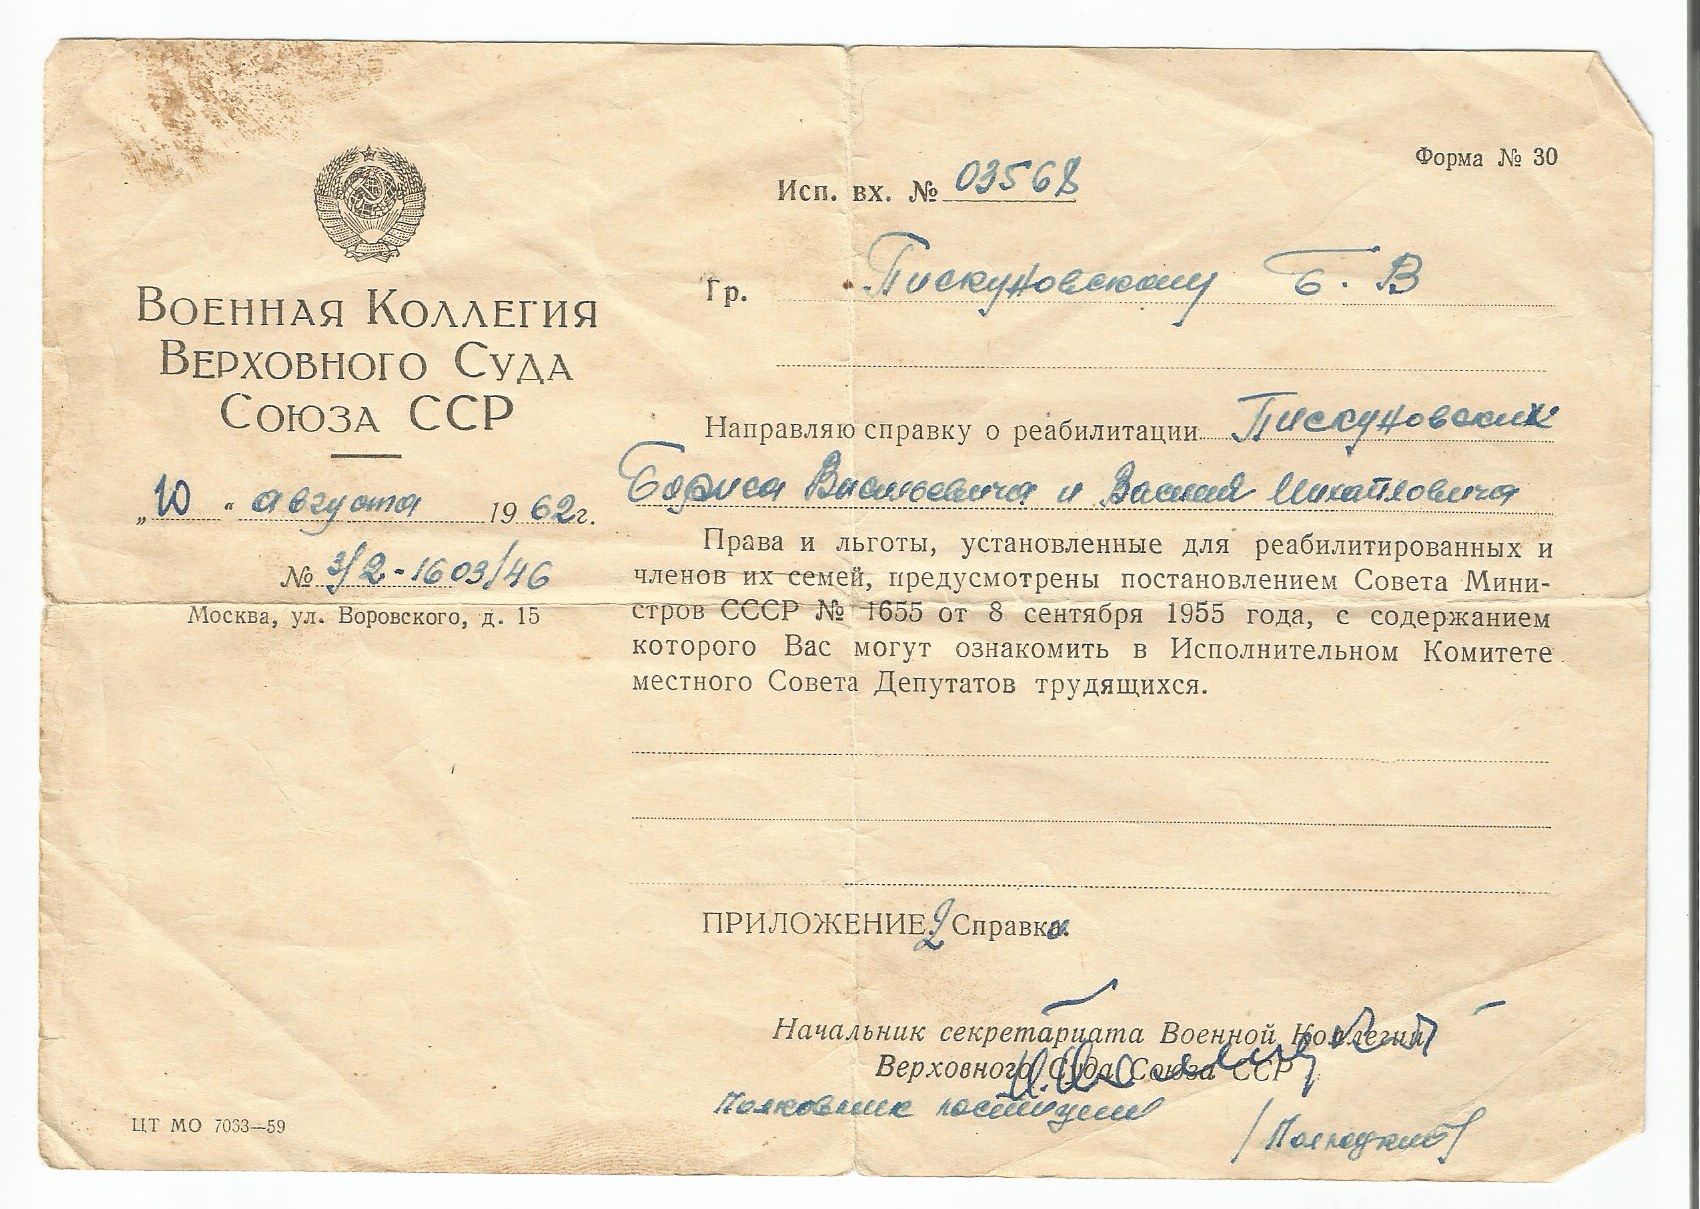 Форма № 30
Исп. вх. № 03568
Гр. Пискуновскому Б. В
ВОЕННАЯ КОЛЛЕГИЯ
ВЕРХОВНОГО СУДА
СОЮЗА ССР
„10“ августа 1962г.
№ 3/2-1603/46
Москва, ул. Воровского, д. 15
Направляю справку о реабилитации Пискуновских
Бориса Васильевича и Василия Михайловича
Права и льготы, установленные для реабилитированных и
членов их семей, предусмотрены постановлением Совета Мини-
стров СССР № 1655 от 8 сентября 1955 года, с содержанием
которого Вас могут ознакомить в Исполнительном Комитете
местного Совета Депутатов трудящихся.
ПРИЛОЖЕНИЕ: 2 Справки.
Начальник секретариата Военной Коллегии
Верховного Суда Союза ССР
Полковник юстиции
ЦТ МО 7033—59